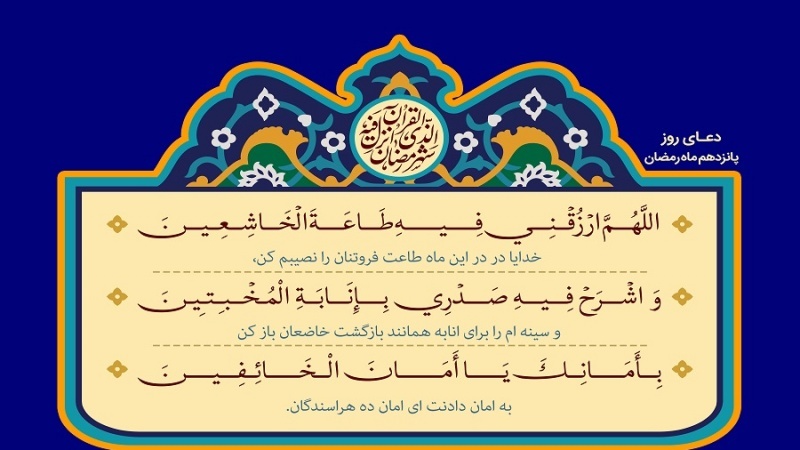 شهر رمضان الذی انزل فیه القرآن
دعـای روز
پانزدهم ماه رمضان
اللَّهُمَّ ارْزُقْنِي فِيهِ طَاعَةَ الْخَاشِعِينَ
خدایا در در این ماه طاعت فروتنان را نصیبم کن،
وَ اشْرَحْ فِيهِ صَدْرِي بِإِنَابَةِ الْمُخْبِتِينَ
و سینه ام را برای انابه همانند بازگشت خاضعان باز کن
بِأَمَانِكَ يَا أَمَانَ الْخَائِفِينَ
به امان دادنت ای امان ده هراسندگان.